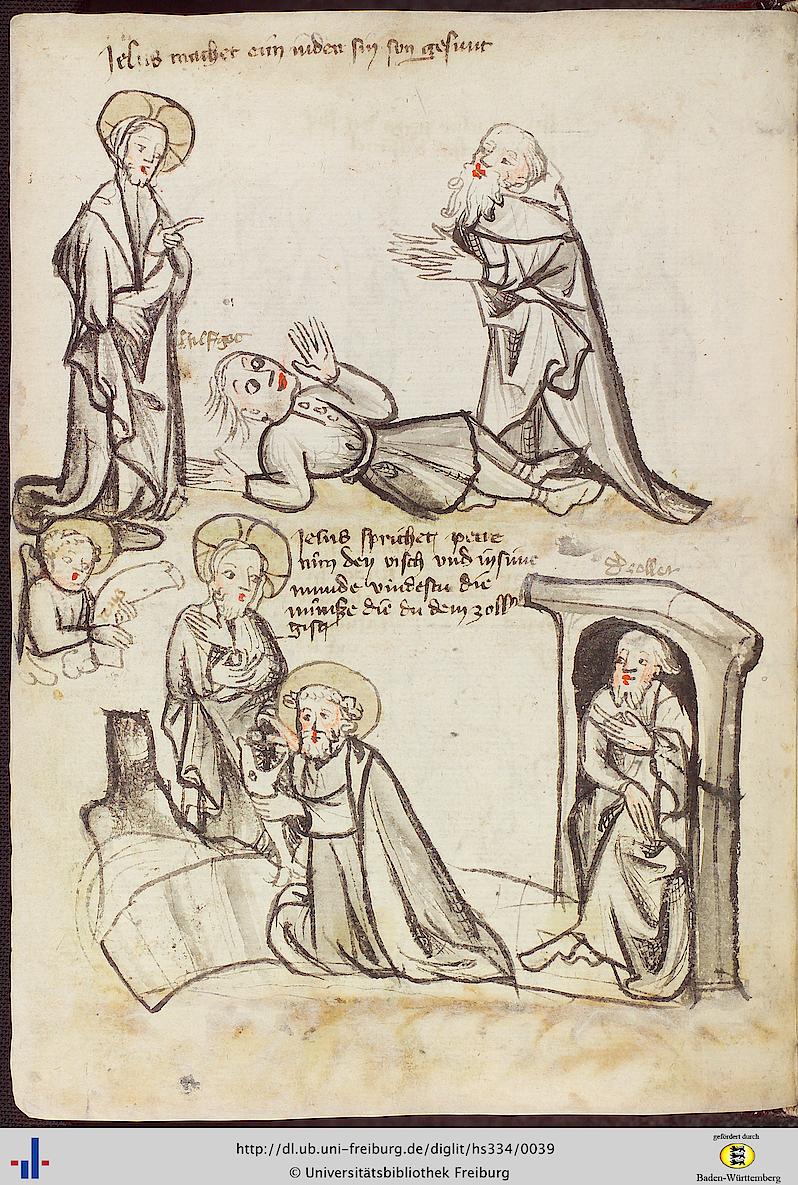 Jesus machet eim iuden sin sun gesunt
hilf got
Jesus sprichet peter
nim den visch vnd in sime
munde vindestu die
müntze die du dem zoller
gist
Zoller
http://dl.ub.uni-freiburg.de/diglit/hs334/0039
© Universitätsbibliothek Freiburg
gefördert durch
Baden-Württemberg